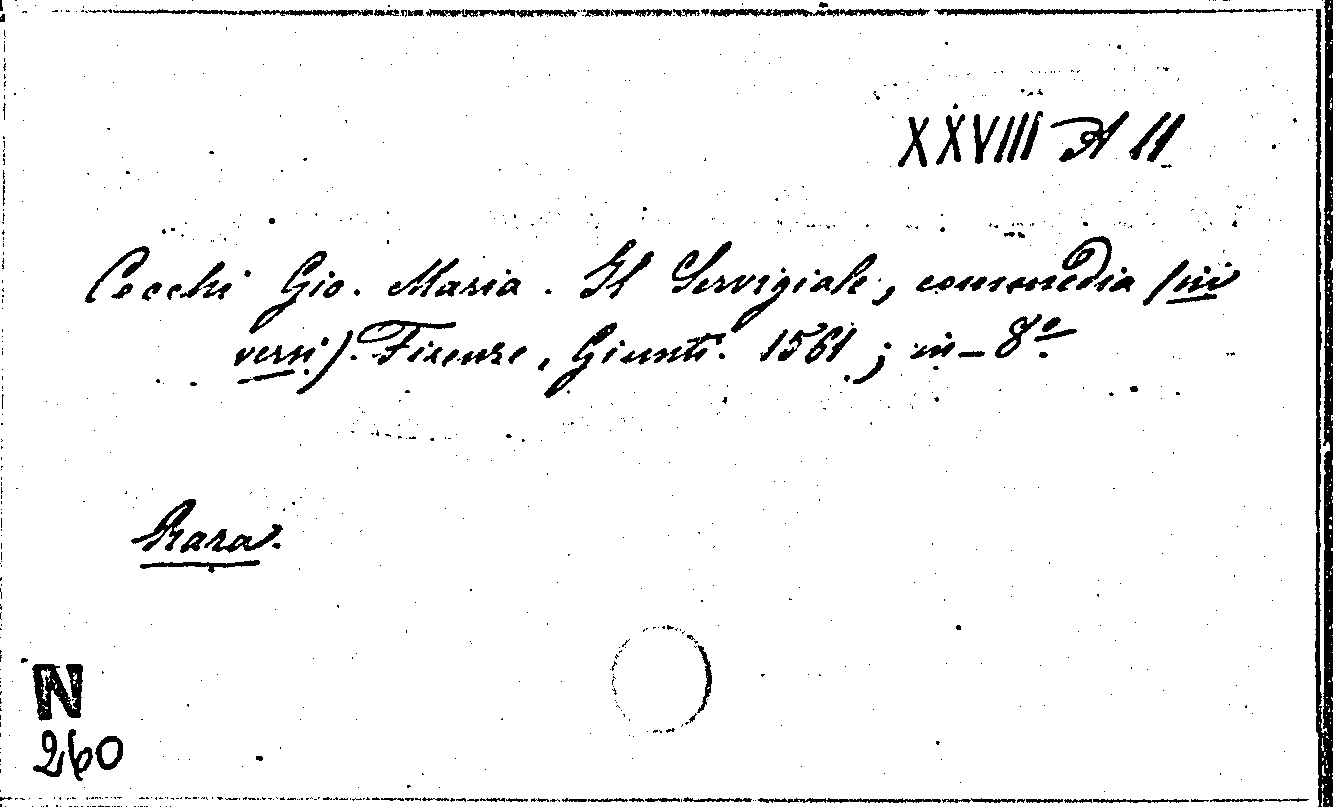 XXVIII A 11
Cecchi Gio. Maria. Il Servigiale, commedia (in
versi). Firenze, Giunti. 1561; in-8º.
Rara.
N
260